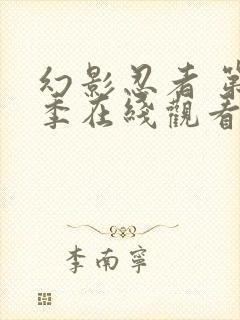 幻影忍者 第
季在綫觀看
李南寧